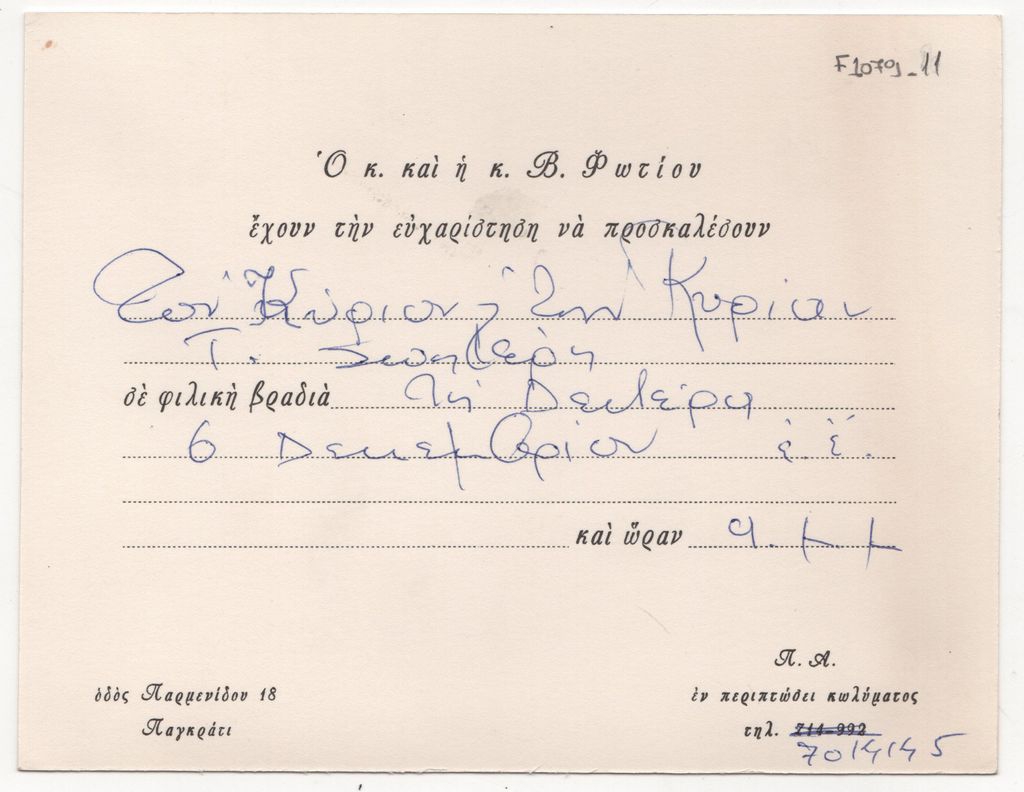 F1079-11
Ὁ κ. καὶ ἡ κ. Β. Φωτίου
ἔχουν τὴν εὐχαρίστηση νὰ προσκαλέσουν
Τὸν Κύριον, τὴν Κυρίαν
Τ.
σὲ φιλικὴ βραδιὰ τὴ Δευτέρα
6 Δεκεμβρίου ἐ. ἔ.
καὶ ὥραν 9. μ. μ
Π. Α.
ὁδὸς Παρμενίδου 18
ἐν περιπτώσει κωλύματος
Παγκράτι
τηλ. 714-992
7014145